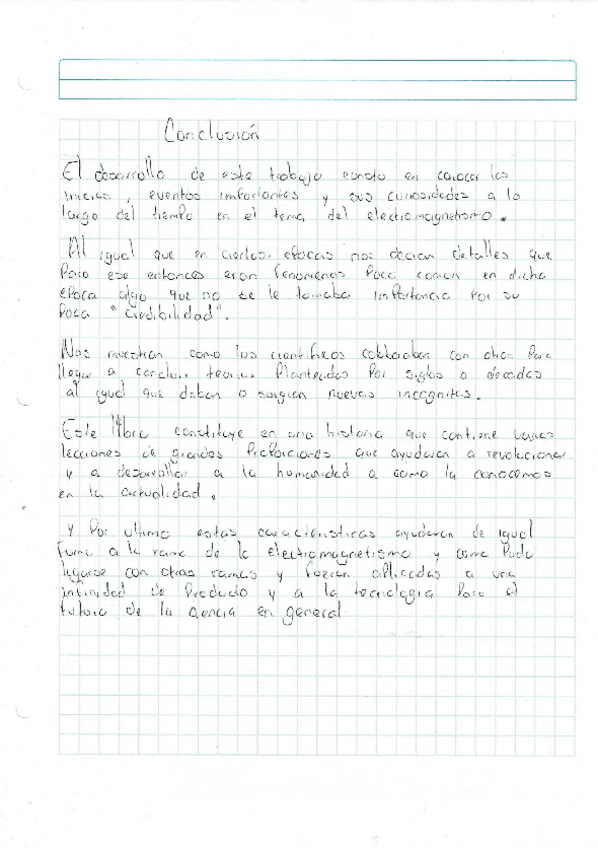 Conclusión
El desarrollo de este trabajo consto en conocer los
inicios, eventos importantes y sus curiosidades a lo
largo del tiempo en el tema del electromagnetismo.
Al igual que en ciertas epocas nos decian detalles que
Para ese entonces eran fenomenos Poco comun en dicha
epoca algo que no se le tomaba importancia Por su
Poca "credibilidad".
Nos muestran como los cientificos colaboraban con otros Para
llegar a conclu.. teorias Planteadas Por siglos o decadas
al igual que daban o surgian nuevas incognitas.
Este libro constituye en una historia que contiene varias
lecciones de grandes que ayudaron a revolucionar
y a desarrollar a la humanidad a como la conocemos
en la actualidad.
y Por ultimo estas caracteristicas ayudaron de igual
forma a la rama de la electromagnetismo y como Pudo
ligarse con otras ramas y fueran aplicadas a una
infinidad de Producto y a la tecnologia Para el
futuro de la ciencia en general